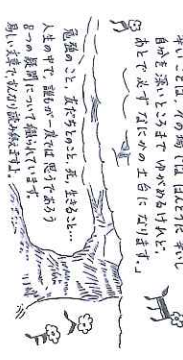 辛いことは、その時にはほんとうに辛いし
自分を深いところまでゆがめるけれど、
あとで必ずなにかの土台になります。」
勉強のこと、友だちのこと、死、生きること…
人生の中で、誰もが一度では思うであろう
8つの疑問について綴られています。
易しい文章で、すんなり読み故えますよ。